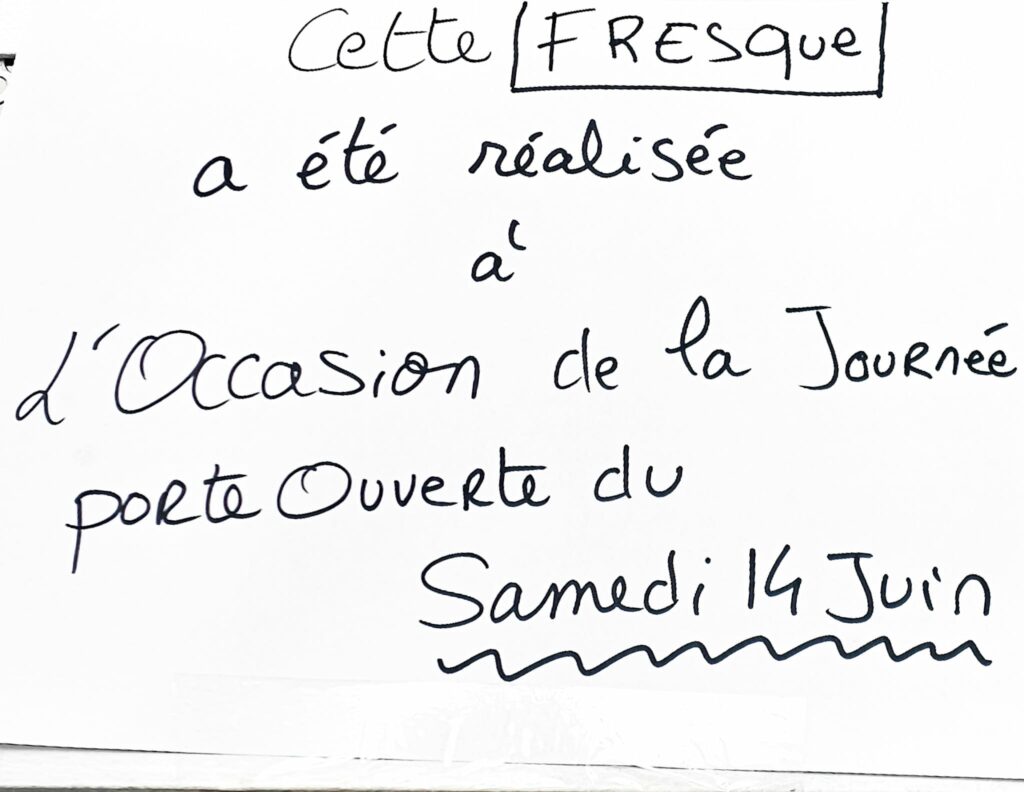 Cette FRESque
a été réalisée
à
L'Occasion de la Journée
porte Ouverte du
Samedi 14 Juin